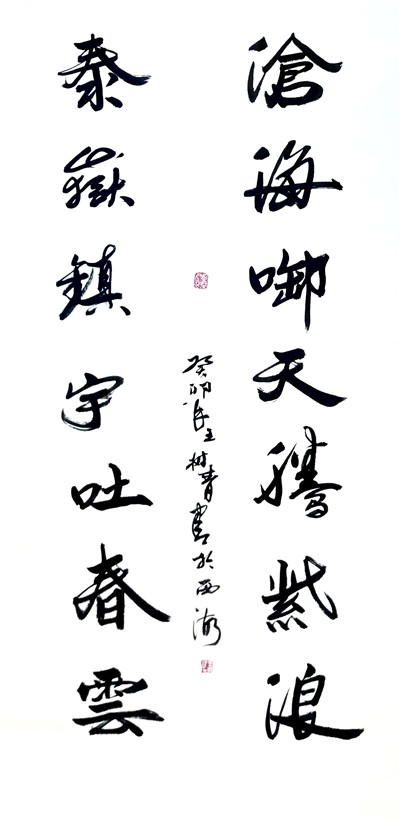 滄海啣天騰紫浪
泰嶽鎮宇吐春雲
癸卯年王樹青書於西海